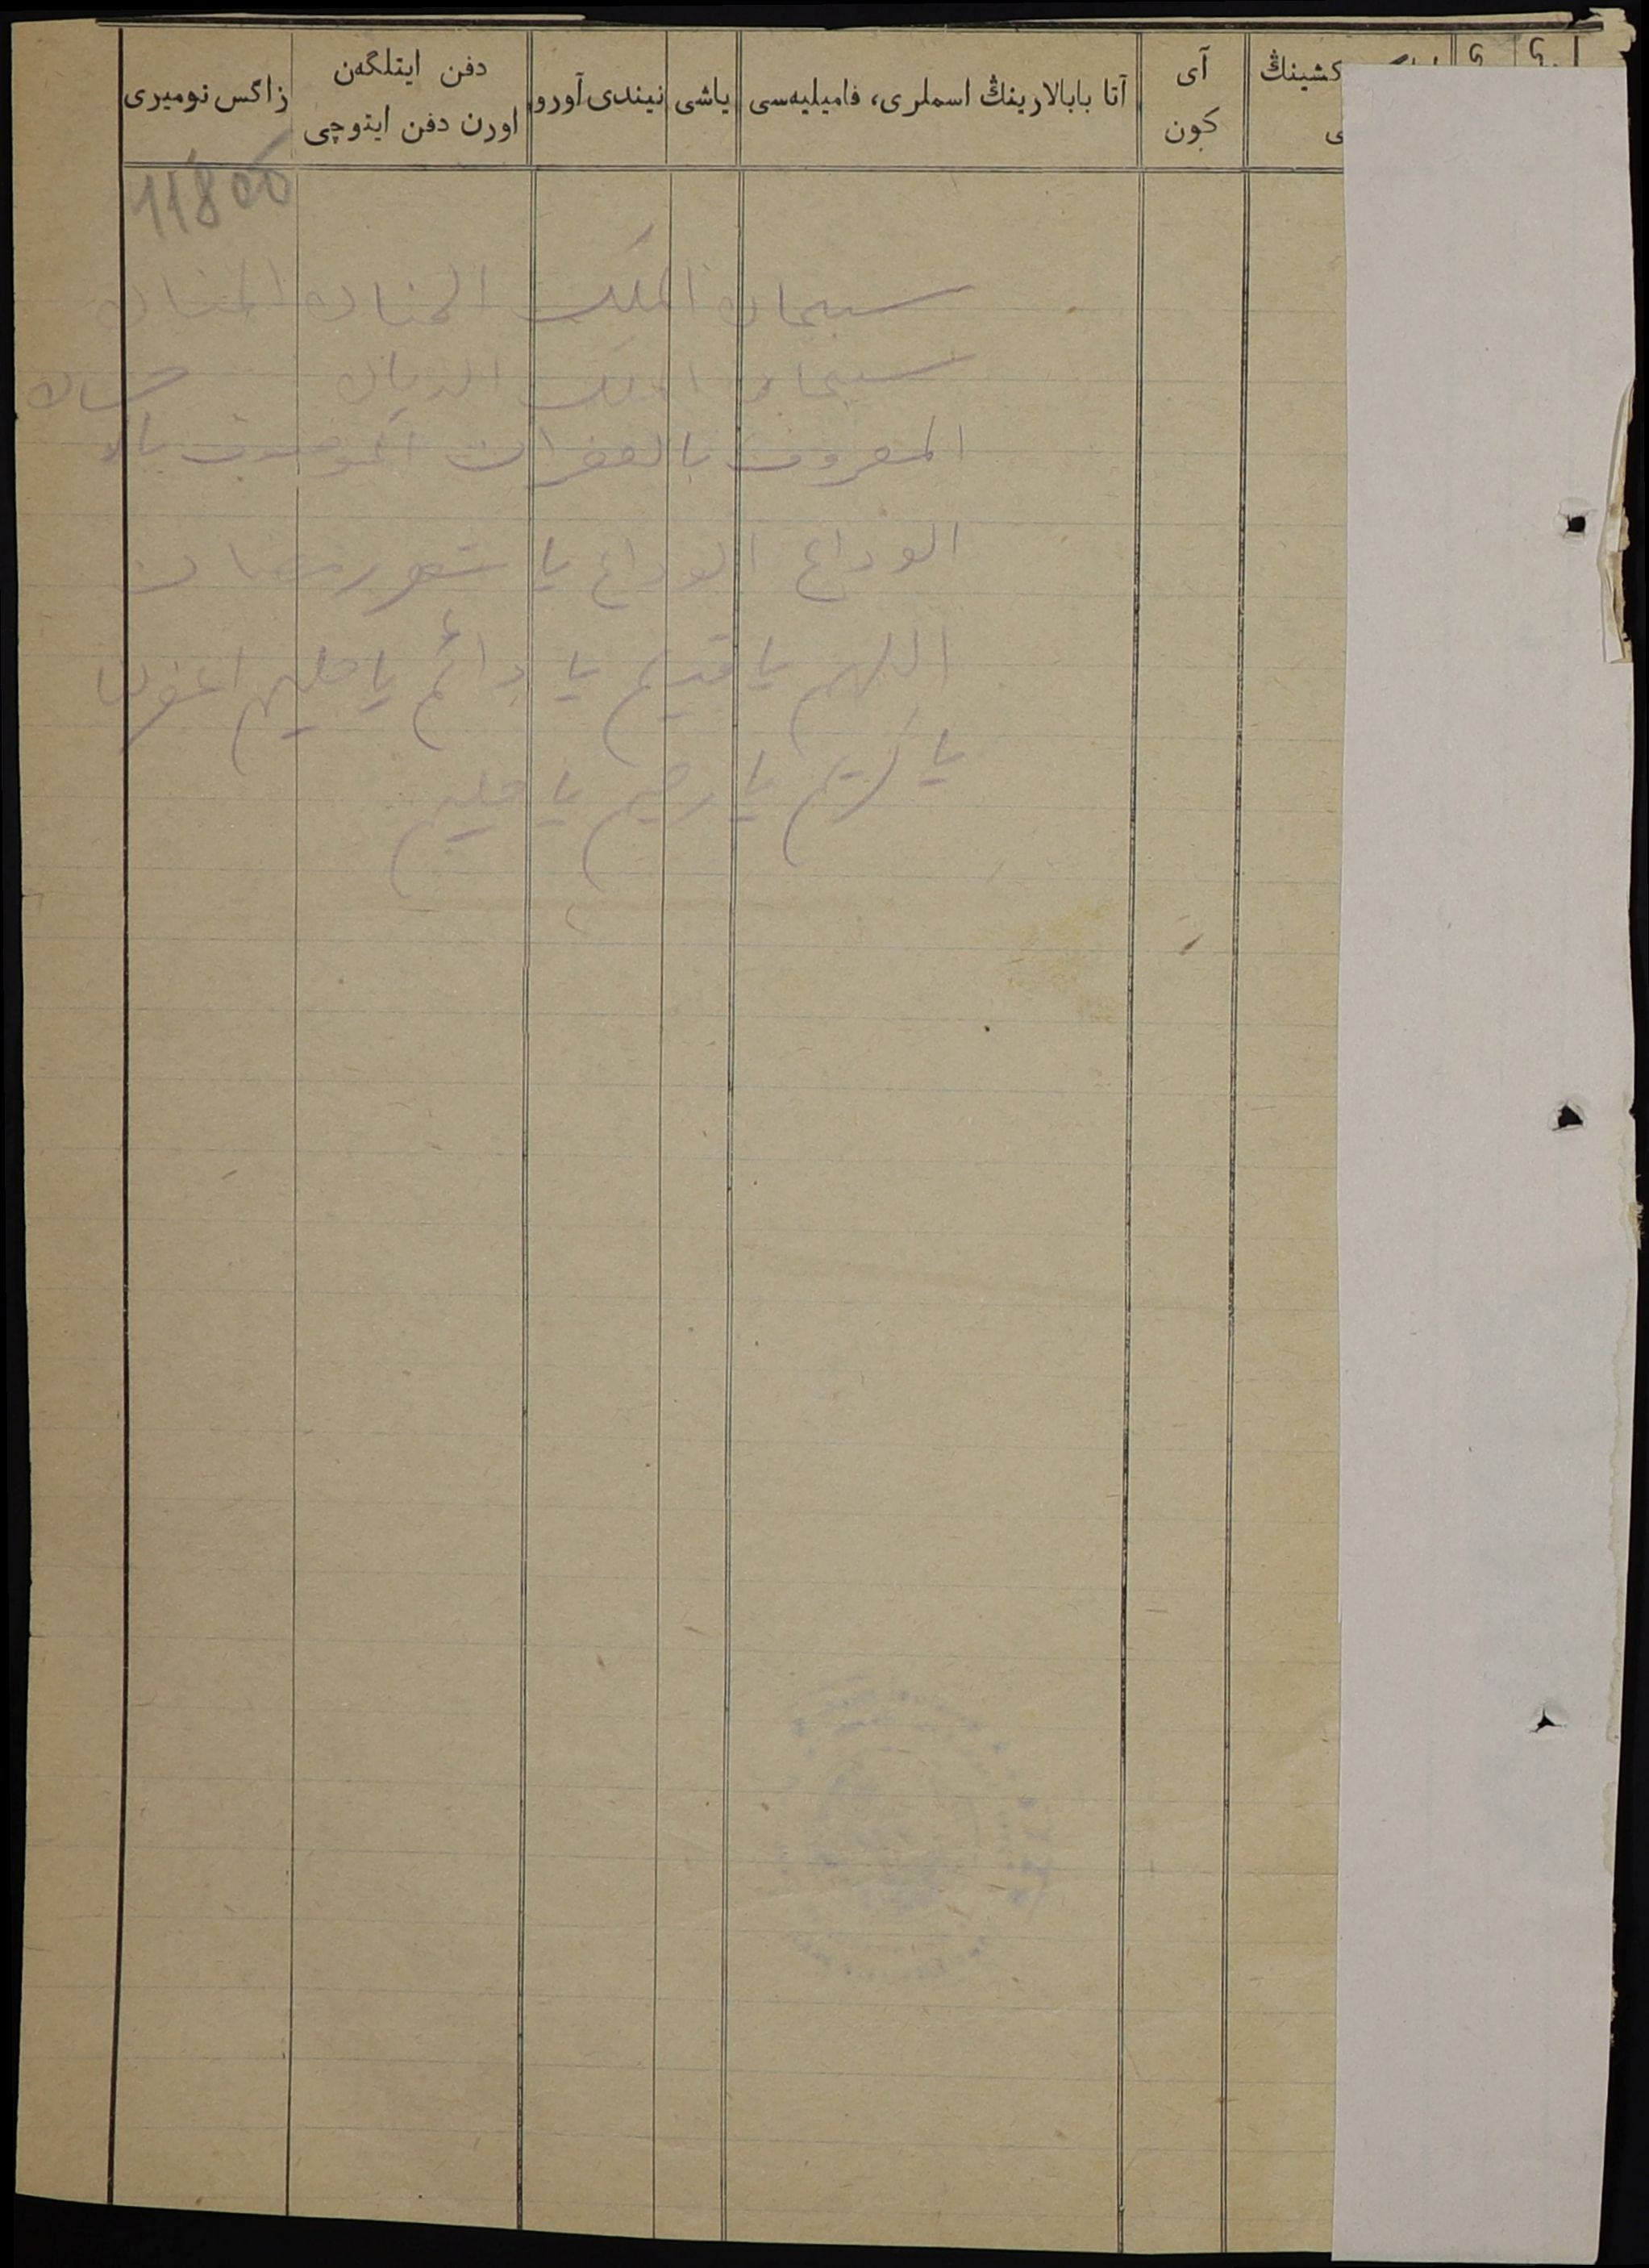 كشينڭ
آی
كون
آتا بابالارينڭ اسملری، فاميليه‌سی
ياشی
نيندی آورو
دفن ايتلگەن
اورن دفن ايتوچی
زاگس نوميری
11800
سبحان الملك الحنان المنان
سبحان الملك الديان
المعروف بالغفران الموصوف بالا
حسان
الوداع الوداع يا شهر رمضان
اللهم يا قديم يا دائم يا حليم اغفرلنا
يا كريم يا رحيم يا حليم